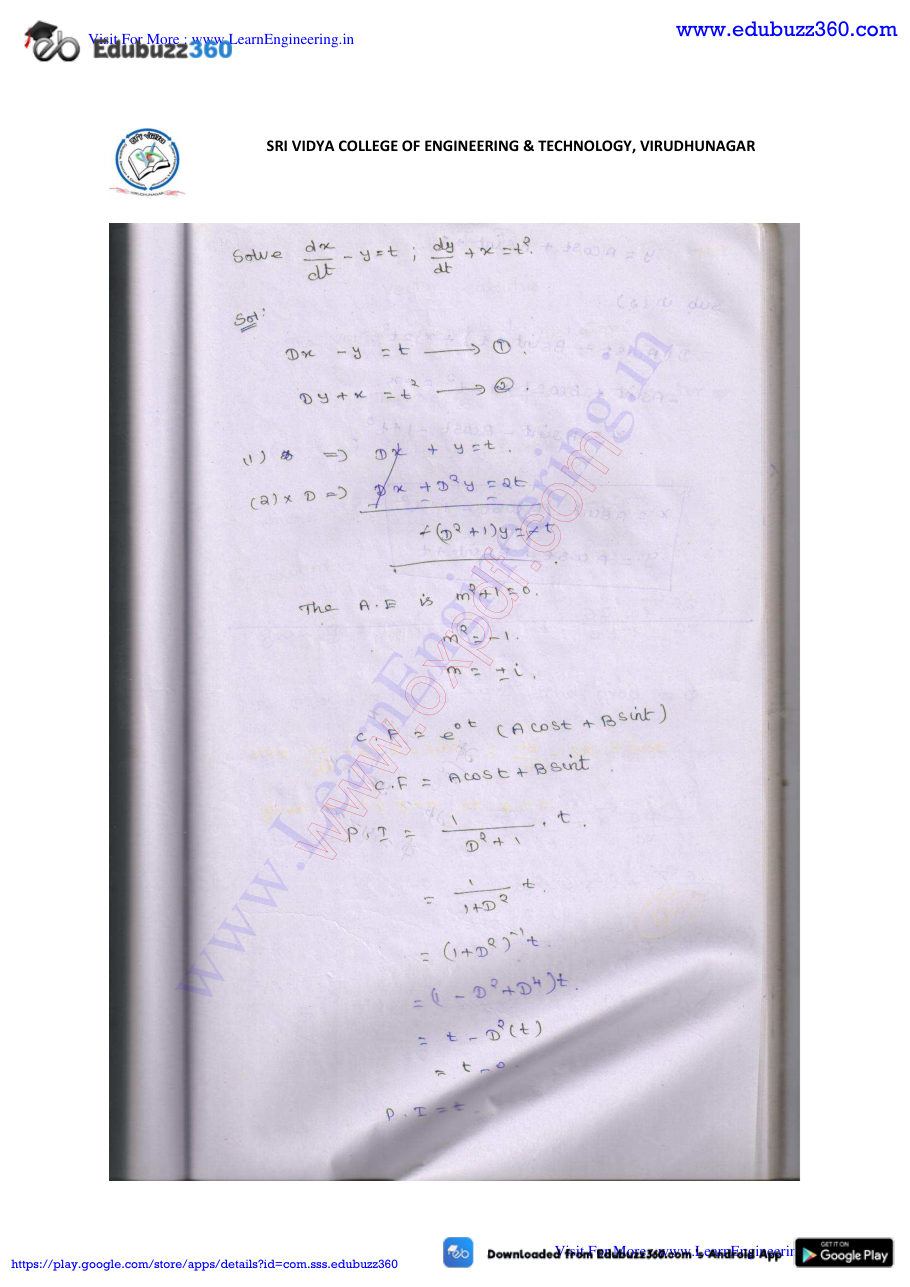 Visit For More : www.LearnEngineering.in
Edubuzz360
www.edubuzz360.com
SRI VIDYA COLLEGE OF ENGINEERING & TECHNOLOGY, VIRUDHUNAGAR
Solve dx/dt - y = t ; dy/dt + x = t².
Sol:
Dx - y = t → ①.
Dy + x = t² → ②.
(1) ⇒ Dx + y = t.
(2) × D ⇒ Dx + D²y = 2t
-(D² + 1)y = -t
The A.E is m² + 1 = 0.
m² = -1.
m = ± i.
C.F = e^{0t} (A cost + B sint)
C.F = A cost + B sint.
P.I = 1/(D² + 1) . t.
= 1/(1+D²) t.
= (1+D²)⁻¹ t.
= (1 - D² + D⁴) t.
= t - D²(t)
= t - 0.
P.I = t.
www.LearnEngineering.in
www.oxpdf.com
https://play.google.com/store/apps/details?id=com.sss.edubuzz360
Downloaded from Edubuzz360.com 's Android App
GET IT ON
Google Play